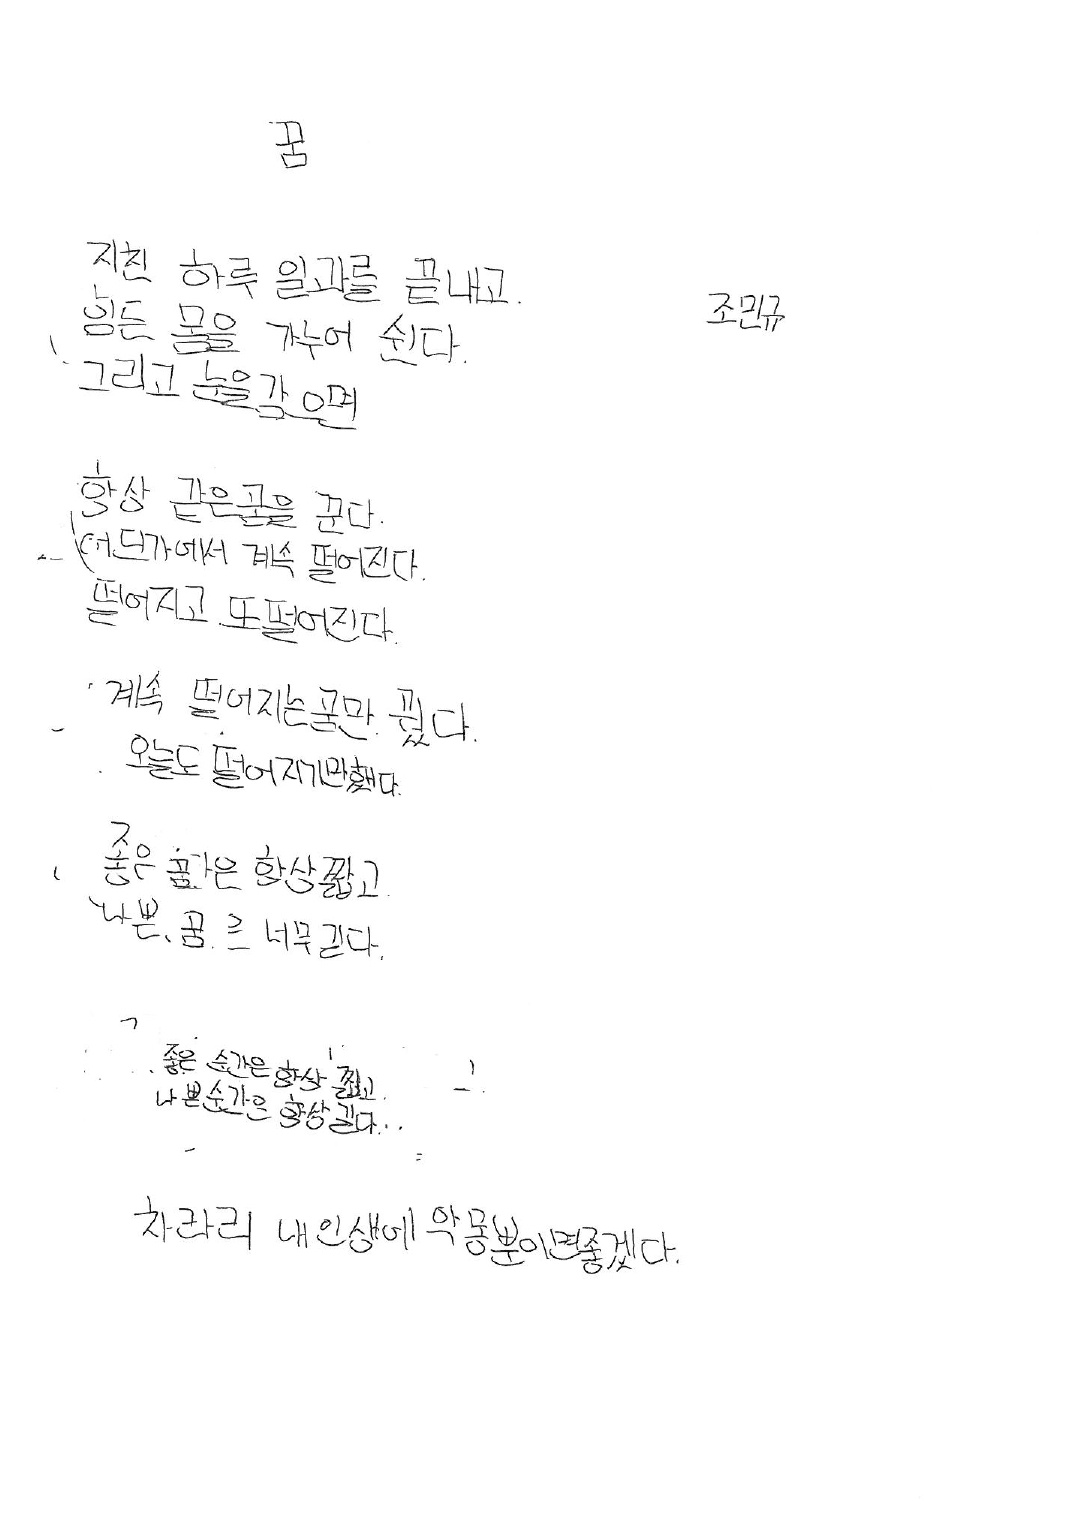 꿈
조민규
지친 하루 일과를 끝내고.
힘든 몸을 가누어 쉰다.
그리고 눈을감으면
항상 같은꿈을 꾼다.
어딘가에서 계속 떨어진다.
떨어지고 또떨어진다.
계속 떨어지는꿈만 꿨다.
오늘도 떨어지기만했다.
좋은 항상짧고
나쁜 꿈 너무길다.
좋은 순간은 항상 짧고
나쁜순간은 항상길다..
차라리 내인생에 악몽뿐이면좋겠다.